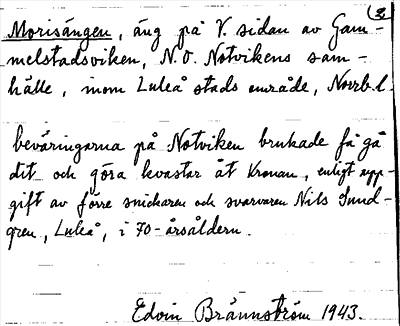 (2)
Morisängen, äng på V. sidan av Gam-
melstadsviken, N.O. Notvikens sam-
hälle, inom Luleå stads område, Norrb.l.
beväringarna på Notviken brukade få gå
dit och göra kvastar åt Kronan, enligt upp-
gift av förre snickaren och svarvaren Nils Sund-
gren, Luleå, i 70-årsåldern.
Edvin Brännström 1943.